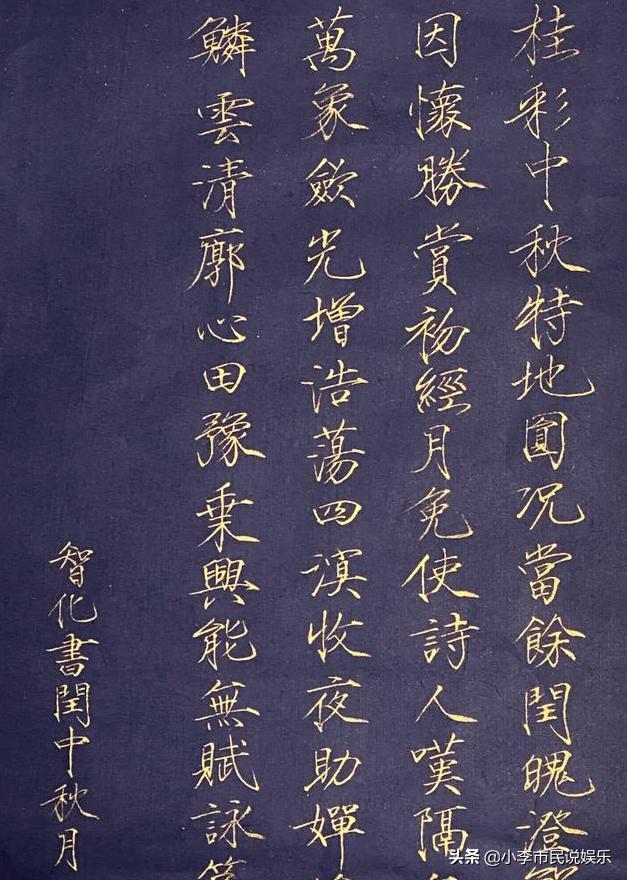 桂彩中秋特地圓况當餘閏魄澄
因懷勝賞初經月免使詩人嘆隔
萬象歛光增浩蕩四溟收夜助嬋
鱗雲清廓心田豫乗興能無賦詠
智化書閏中秋月
头条 @小李市民说娱乐